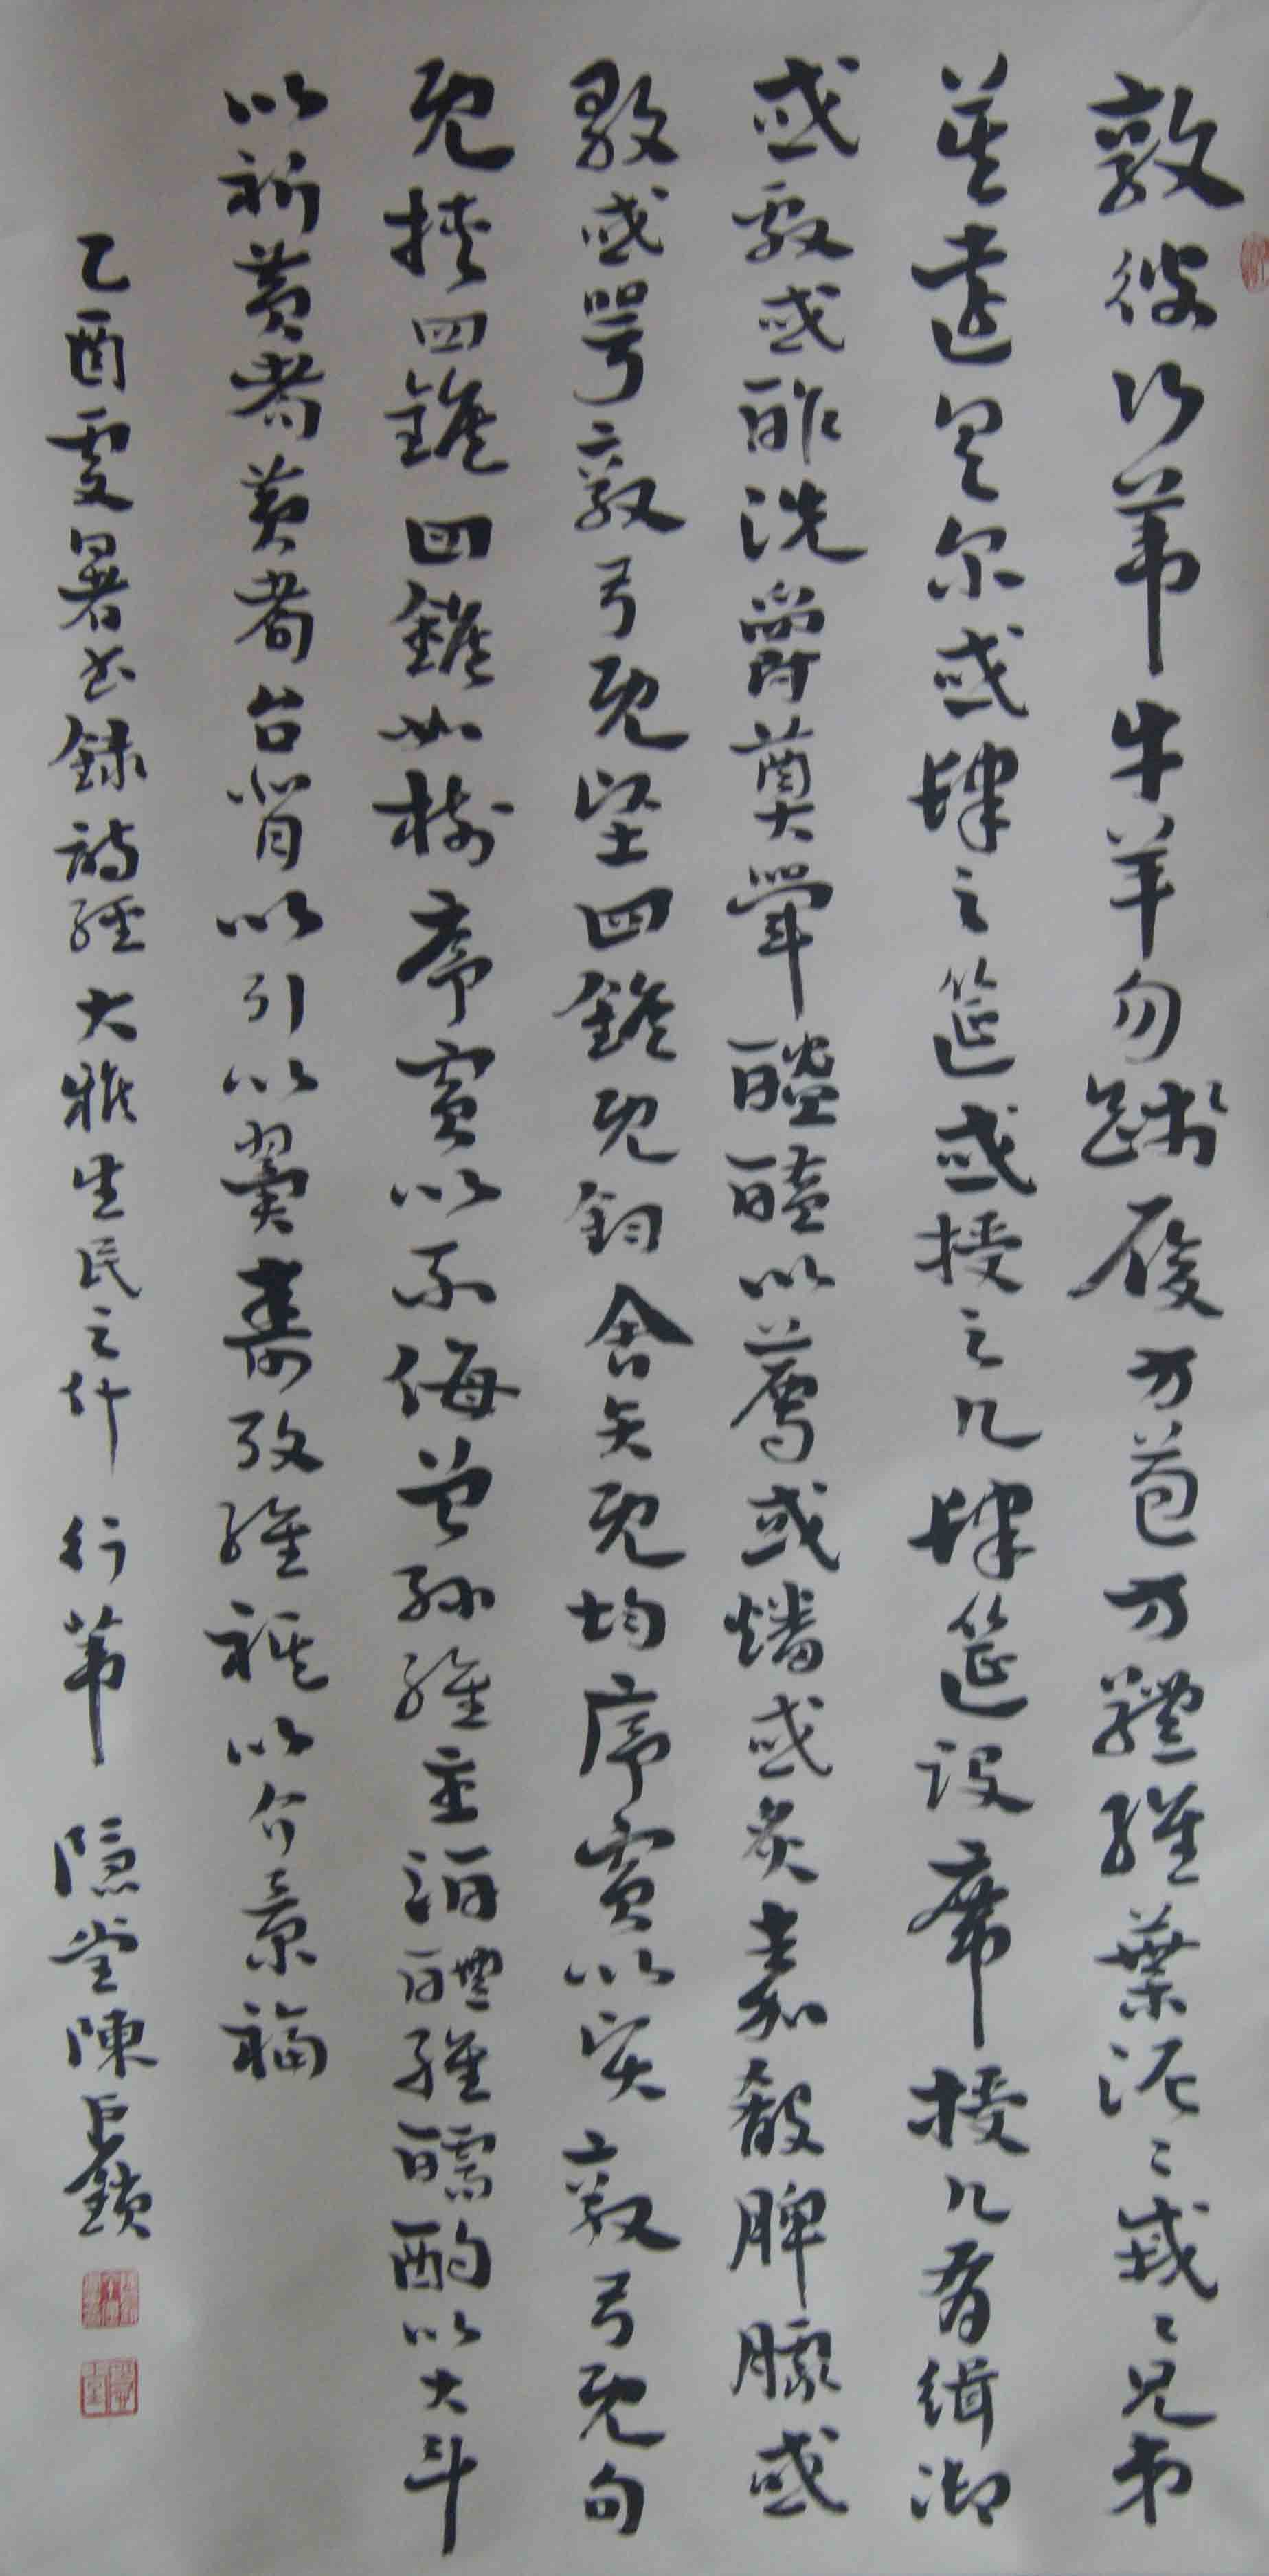 敦彼行葦牛羊勿踐履方苞方體維葉泥〻戚〻兄弟
莫遠具尔或肆之筵或授之几肆筵設席授几有緝御
或獻或酢洗爵奠斝醓醢以薦或燔或炙嘉殽脾臄或
歌或咢敦弓既堅四鍭既鈞舍矢既均序賓以賢敦弓既句
既挾四鍭四鍭如樹序賓以不侮曾孫維主酒醴維醹酌以大斗
以祈黃耇黃耇台背以引以翼壽考維祺以介景福
乙酉處暑書錄詩經大雅生民之什 行葦 隱堂陳巨鎖